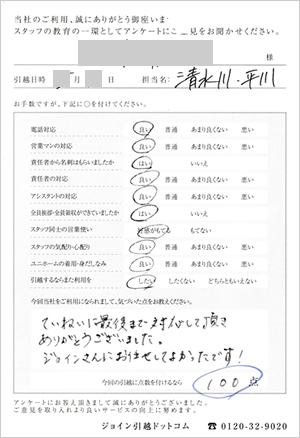 当社のご利用、誠にありがとう御座いま
スタッフの教育の一環としてアンケートにご 見をお聞かせください。
様
引越日時 月 日 担当名: 清水川・平川
お手数ですが、下記に○を付けてください。
電話対応 良い 普通 あまり良くない 悪い
営業マンの対応 良い 普通 あまり良くない 悪い
責任者から名刺はもらいましたか はい いいえ
責任者の対応 良い 普通 あまり良くない 悪い
アシスタントの対応 良い 普通 あまり良くない 悪い
全員挨拶・全員領収ができていましたか はい いいえ
スタッフ同士の言葉使い 好感がもてる もてない
スタッフの気配り・心配り 良い 普通 あまり良くない 悪い
ユニホームの着用・身だしなみ 良い 普通 あまり良くない 悪い
引越するならまた利用を したい したくない どちらともいえない
今回当社をご利用になられまして、気づいた点をお教えください。
ていねいに最後まで対応して頂き
ありがとうございました。
ジョインさんにお任せしてよかったです!
今回の引越に点数を付けるなら 100 点
アンケートにお答え頂きまして誠にありがとうございました。
ご意見を取り入れより良いサービスの向上に努めます。
ジョイン引越ドットコム ☎ 0120-32-9020